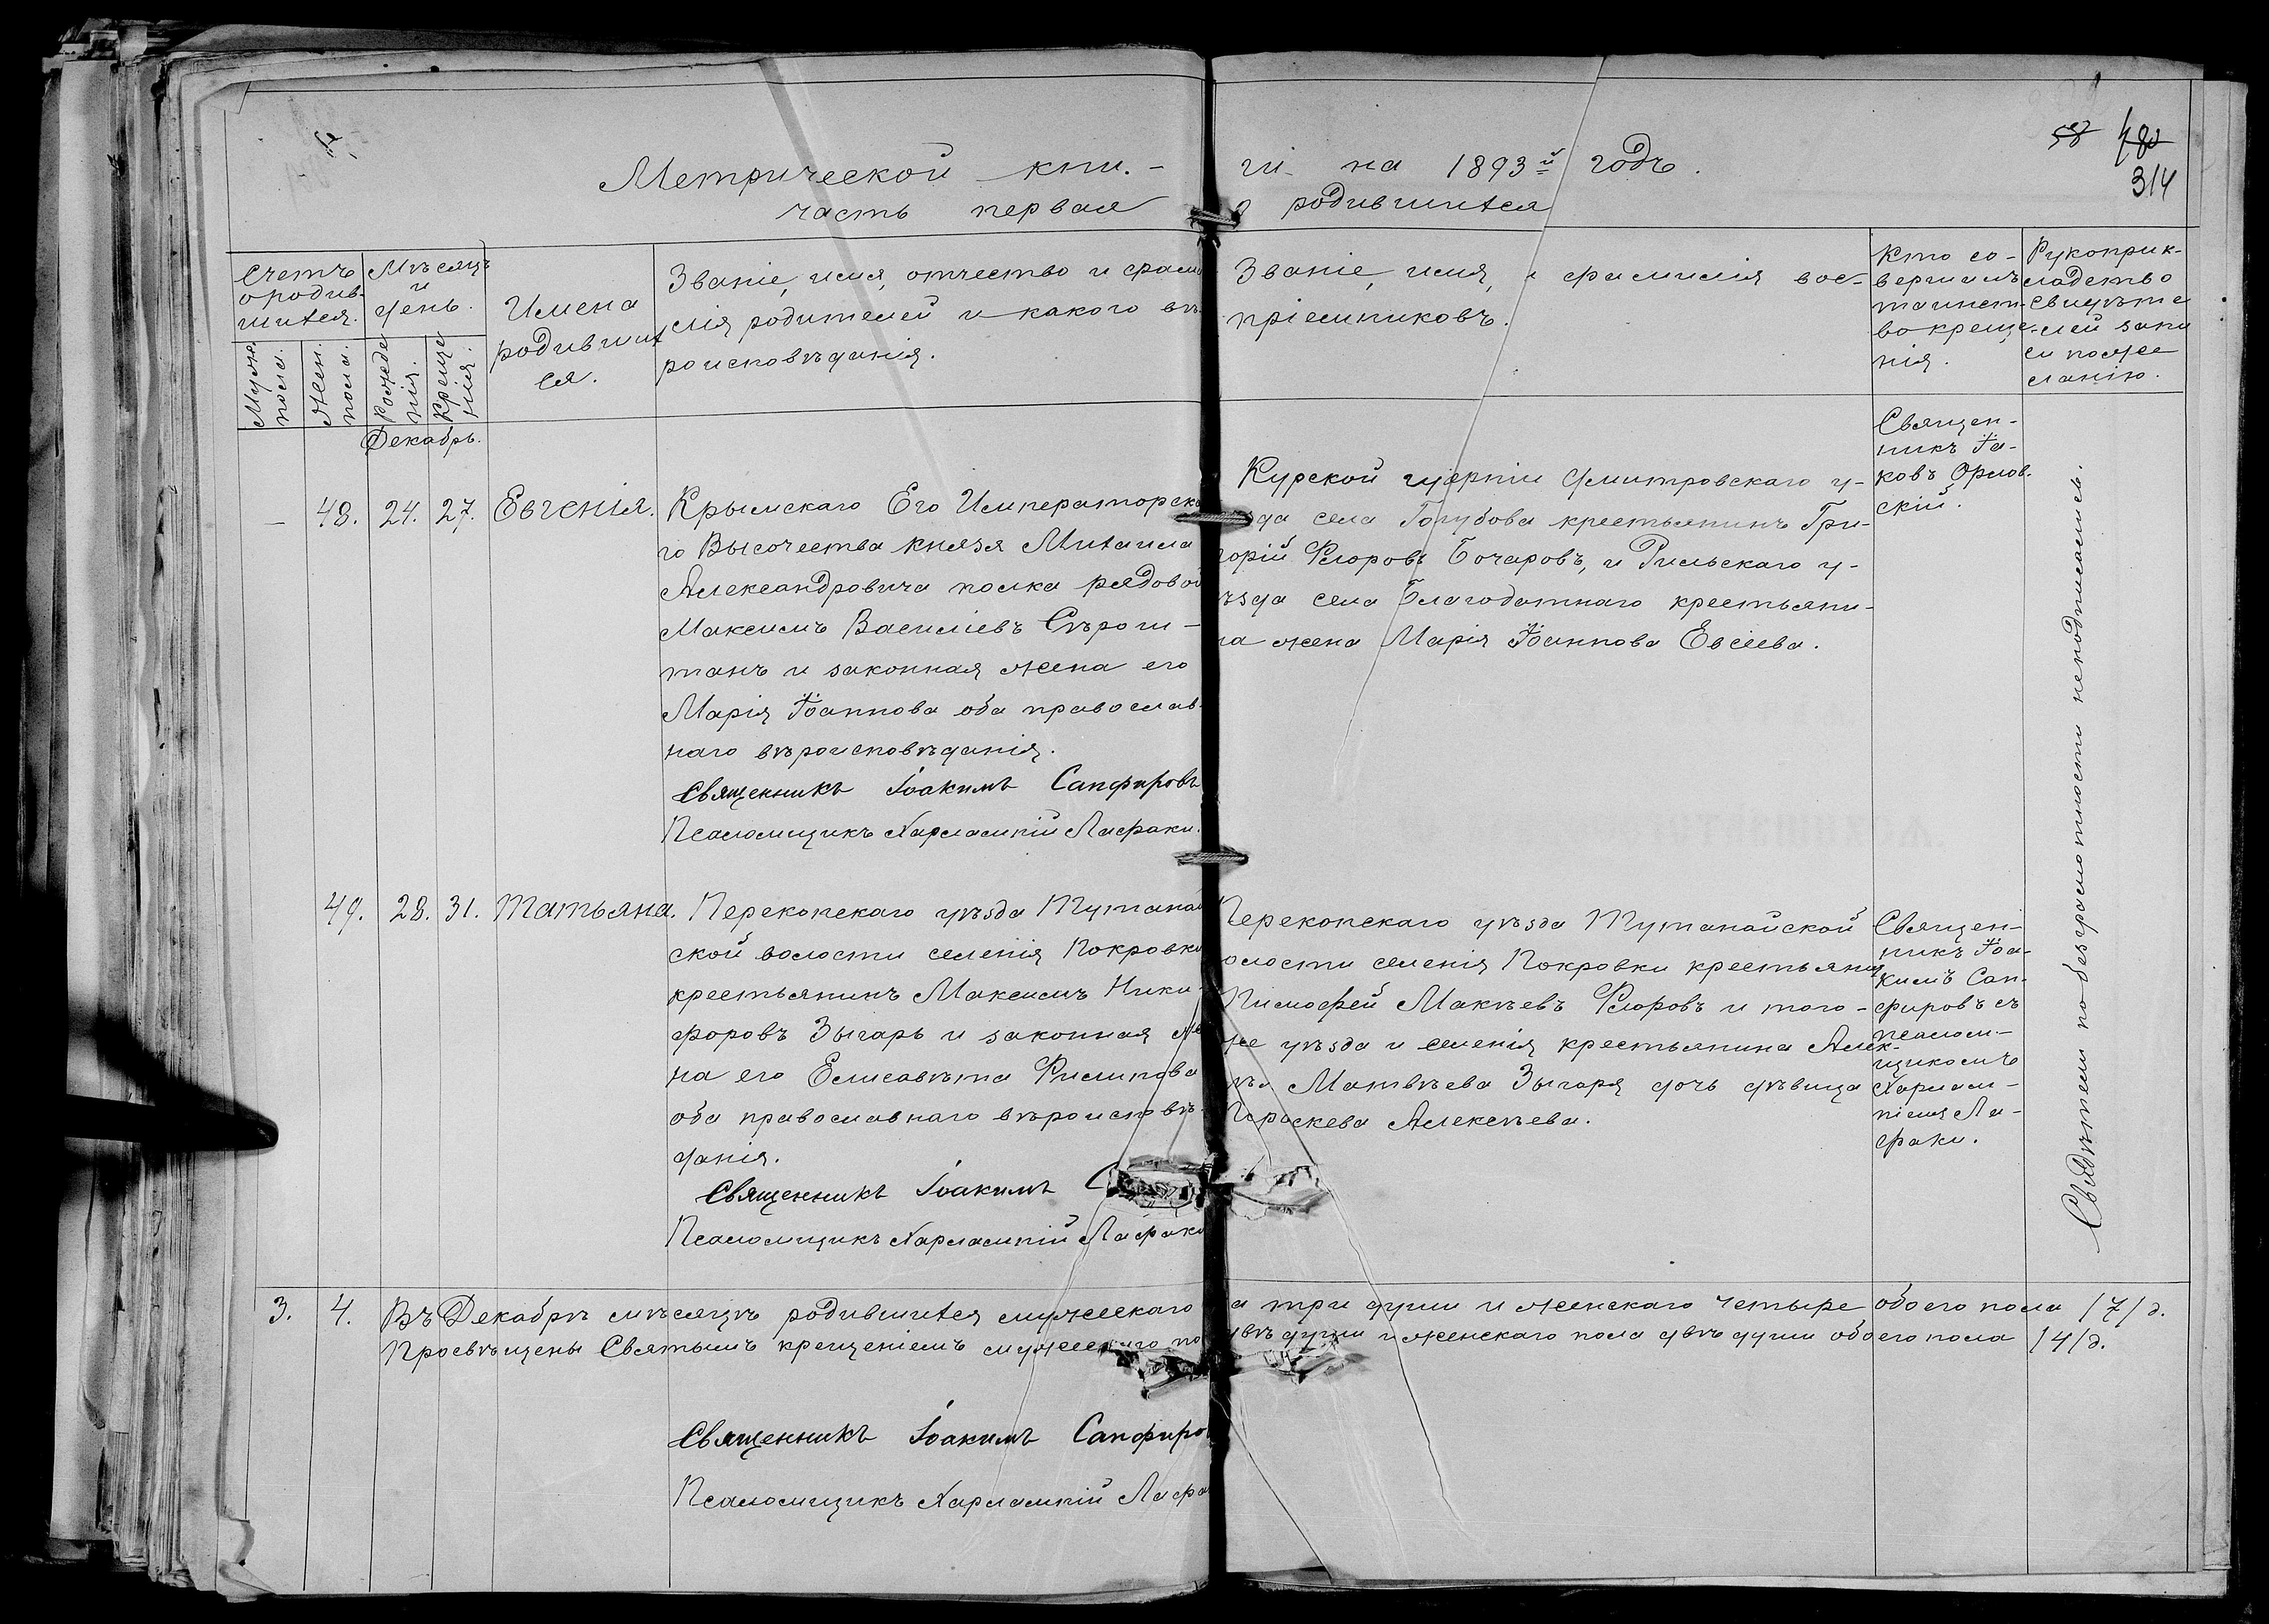 58 480
314
Метрической кни- ги на 1893й годъ.
часть первая о родившихся
Счетъ
о родив-
шихся.
Муж. пола.
Жен. пола.
Мѣсяцъ
и
день.
Рожденія.
Крещенія.
Имена
родивших
ся.
Званіе, имя, отчество и фами
лія родителей и какого вѣ
роисповѣданія.
Званіе, имя, и фамилія вос-
пріемниковъ.
Кто со-
вершалъ
таинст-
во креще
нія.
Рукоприк-
ладство
свидѣте
лей запи
си по же
ланію.
Декабрь.
– 48. 24. 27. Евгенія.
Крымскаго Его Императорска
го Высочества князя Михаила
Александровича полка рядовой
Максимъ Василіевъ
танъ и законная жена его
Марія Іоаннова оба православ-
наго вѣроисповѣданія.
Священникъ Іоакимъ Сапфировъ
Псаломщикъ Харлампій Лафаки.
Курской губерніи Дмитровскаго у-
ѣзда села Голубова крестьянинъ Гри-
горій Ѳеоровъ Бочаровъ, и Рильскаго у-
ѣзда села Благодатнаго крестьяни-
на жена Марія Іоаннова Евсеева.
Священ-
никъ Іа-
ковъ Орлов-
скій.
49. 28. 31. Татьяна.
Перекопскаго уѣзда Тутанай
ской волости селенія Покровки
крестьянинъ Максимъ Ники-
форовъ Зыгарь и законная же
на его Елисавѣта Филипова
оба православнаго вѣроисповѣ-
данія.
Священникъ Іоакимъ С
Псаломщикъ Харлампій Лафаки
Перекопскаго уѣзда Тутанайской
волости селенія Покровки крестьянинъ
Тимофей Макѣевъ Ѳеоровъ и того-
же уѣзда и селенія крестьянина Алек-
ѣя Матвѣева Зыгаря дочь дѣвица
Параскева Алексѣева.
Священ-
никъ Іоа-
кимъ Сап-
фировъ съ
псалом-
щикомъ
Харлам-
піемъ Ла-
факи.
Свидѣтели по безграмотности неподписались.
3. 4. Въ Декабрѣ мѣсяцѣ родившихся мужескаго а три души и женскаго четыре обоего пола /7/ д.
Просвѣщены Святымъ крещеніемъ мужескаго по двѣ души и женскаго пола двѣ души обоего пола /4/ д.
Священникъ Іоакимъ Сапфиров
Псаломщикъ Харлампій Лафа